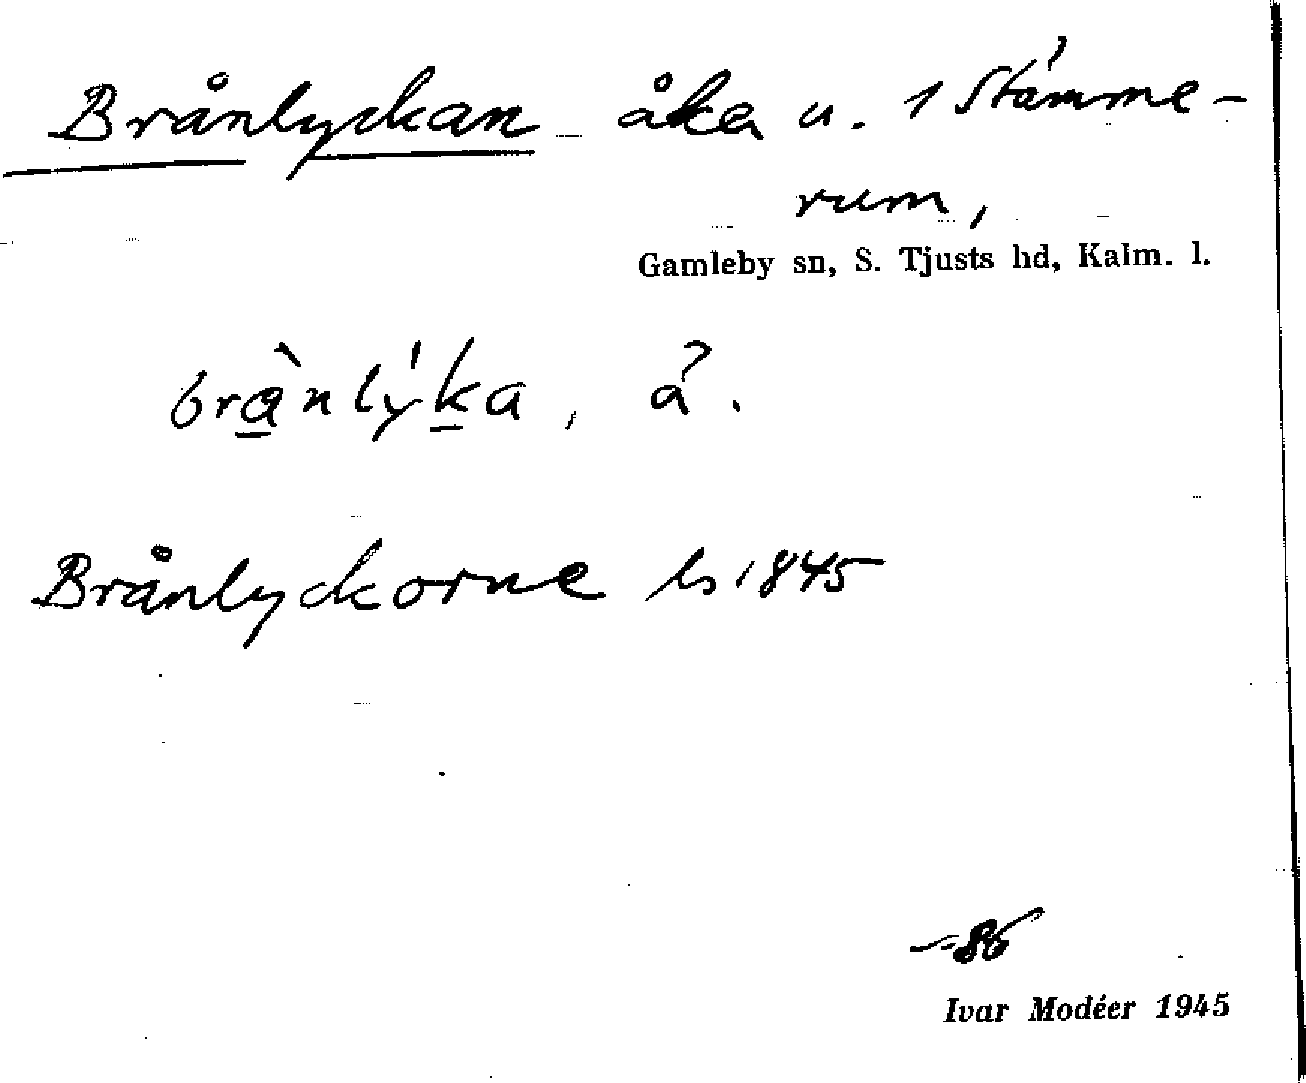 Brånlyckan åker u. 1 Stämme-
rum,
Gamleby sn, S. Tjusts hd, Kalm. l.
brà̲nlýk̲a,
Brånlyckorne ls 1845
Ivar Modéer 1945